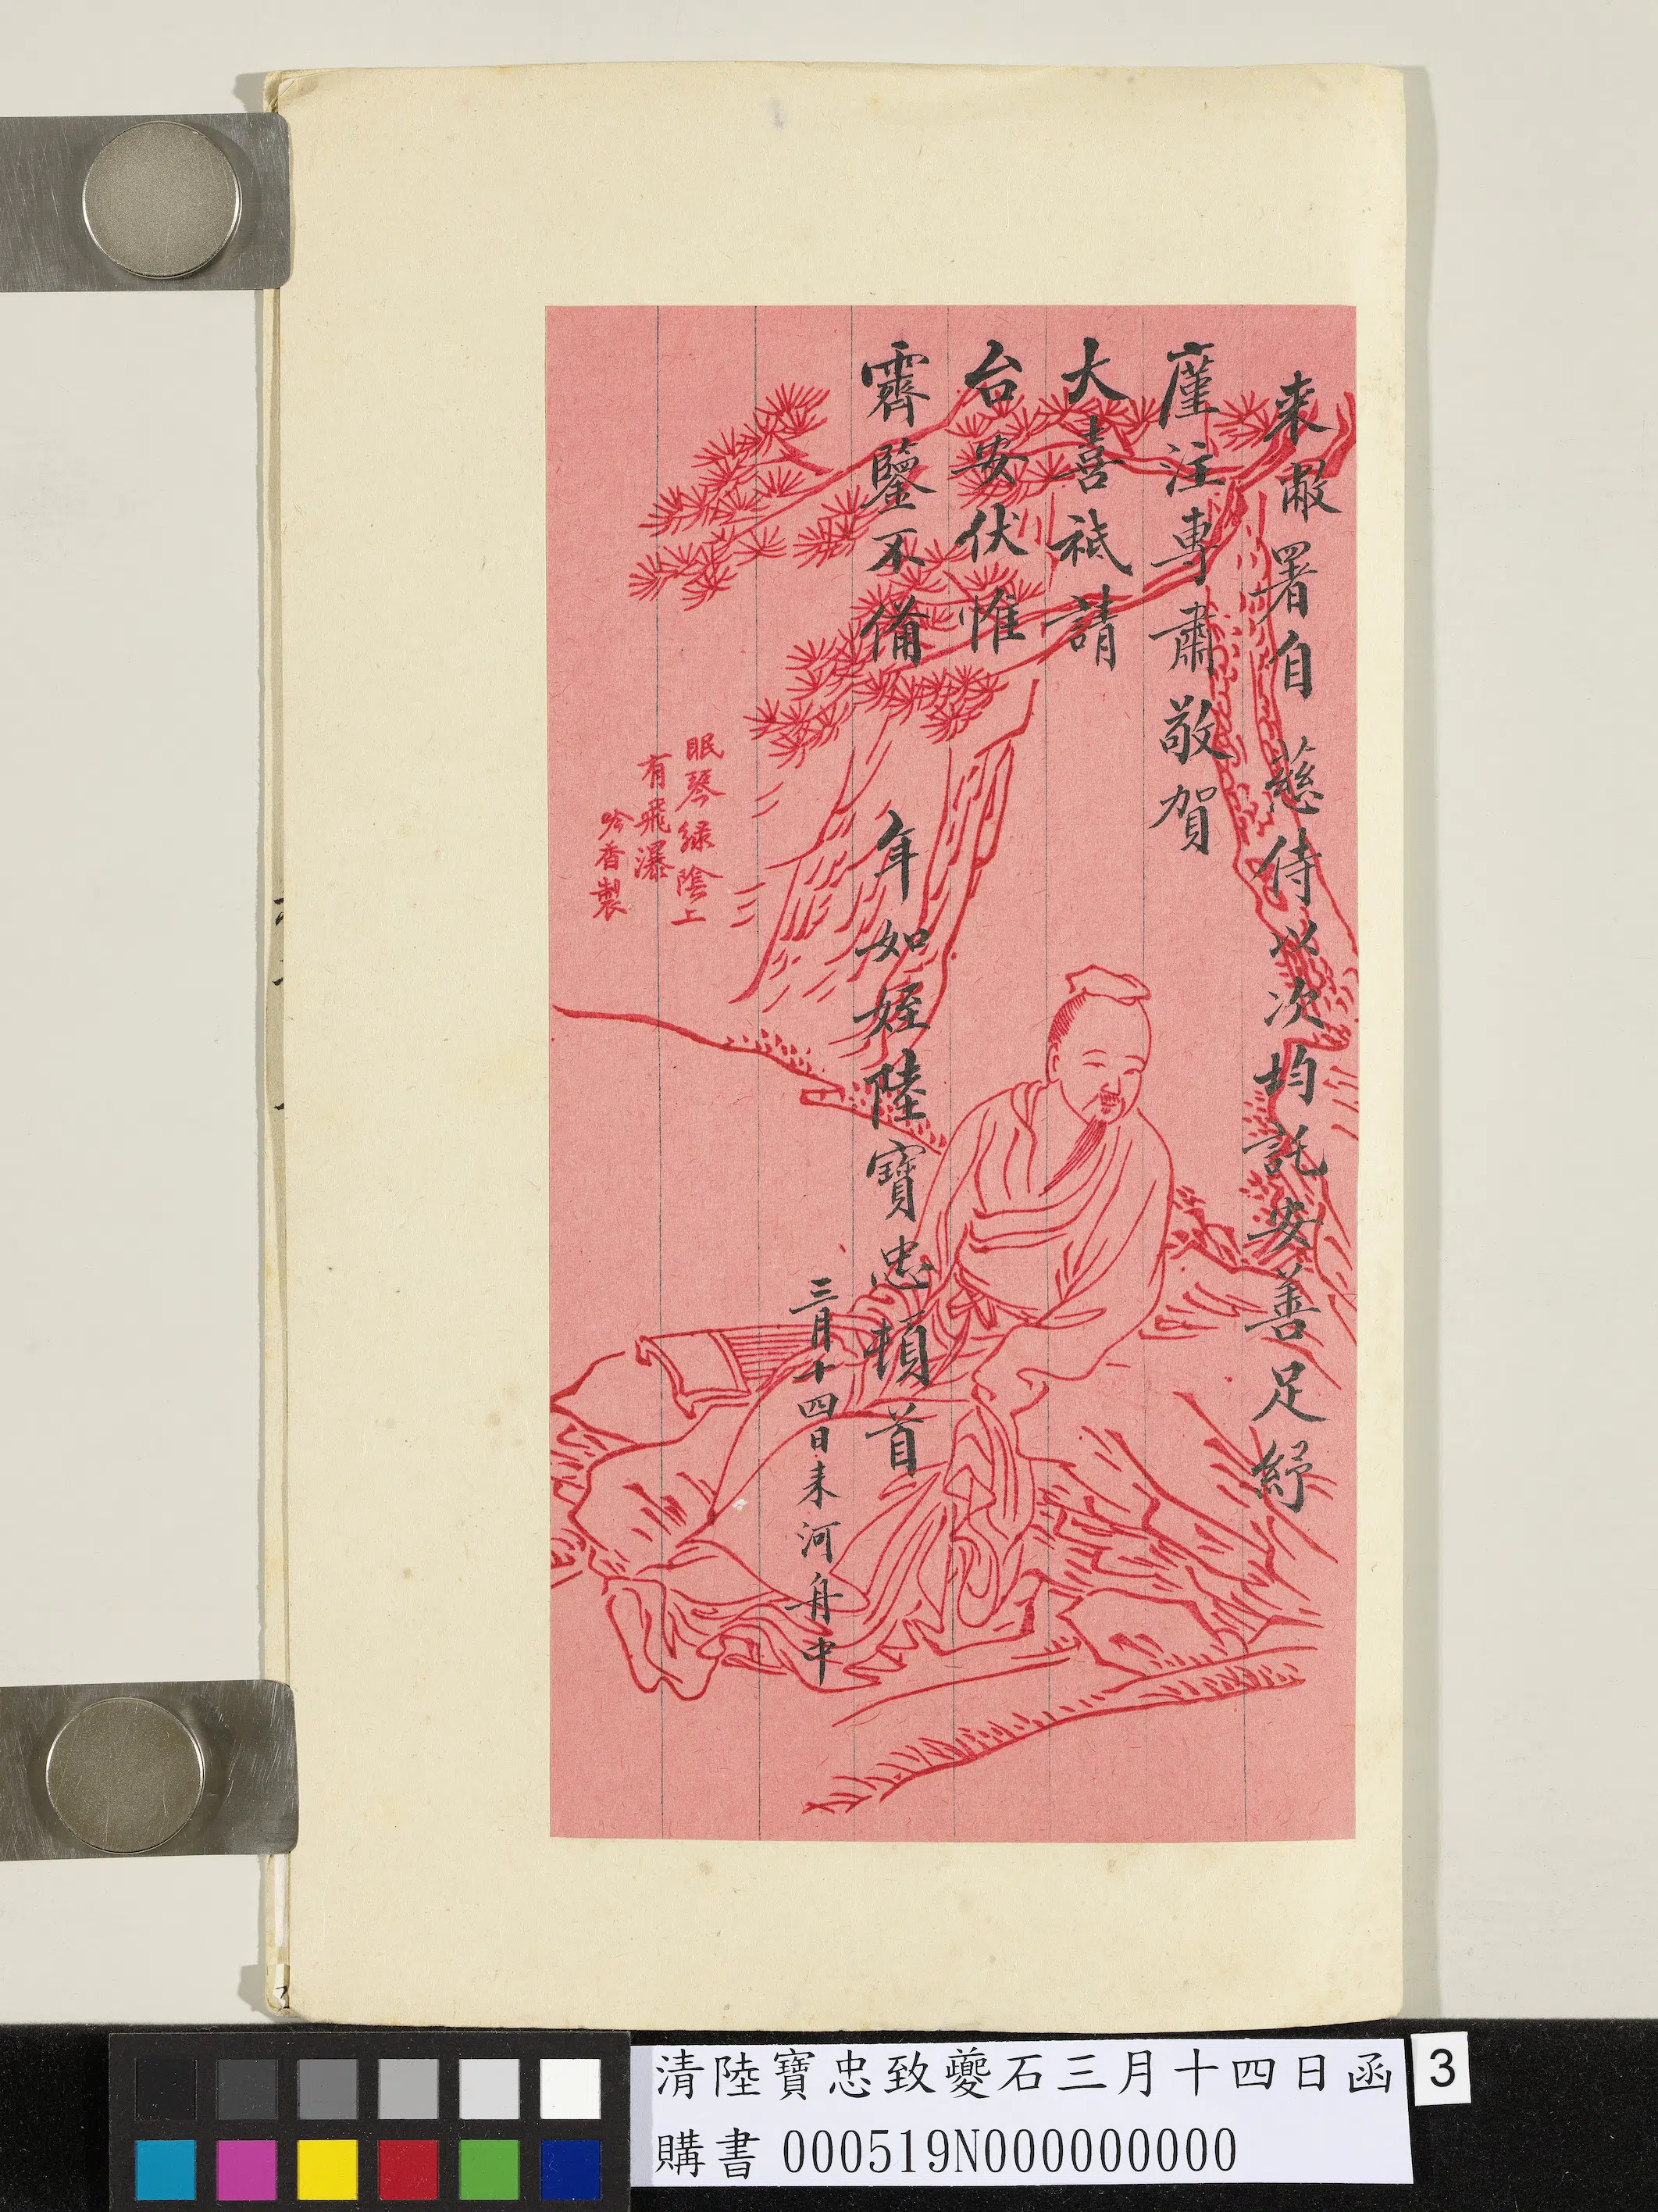 来敝署自 慈侍以次均託安善足紓
廑注專肅敬賀
大喜祗請
台安伏惟
霽鑒不備 年如姪陸寶忠頓首
三月十四日耒河舟中
眠琴綠陰上
有飛瀑
吟香製
清陸寶忠致夔石三月十四日函
3
購書 000519N000000000